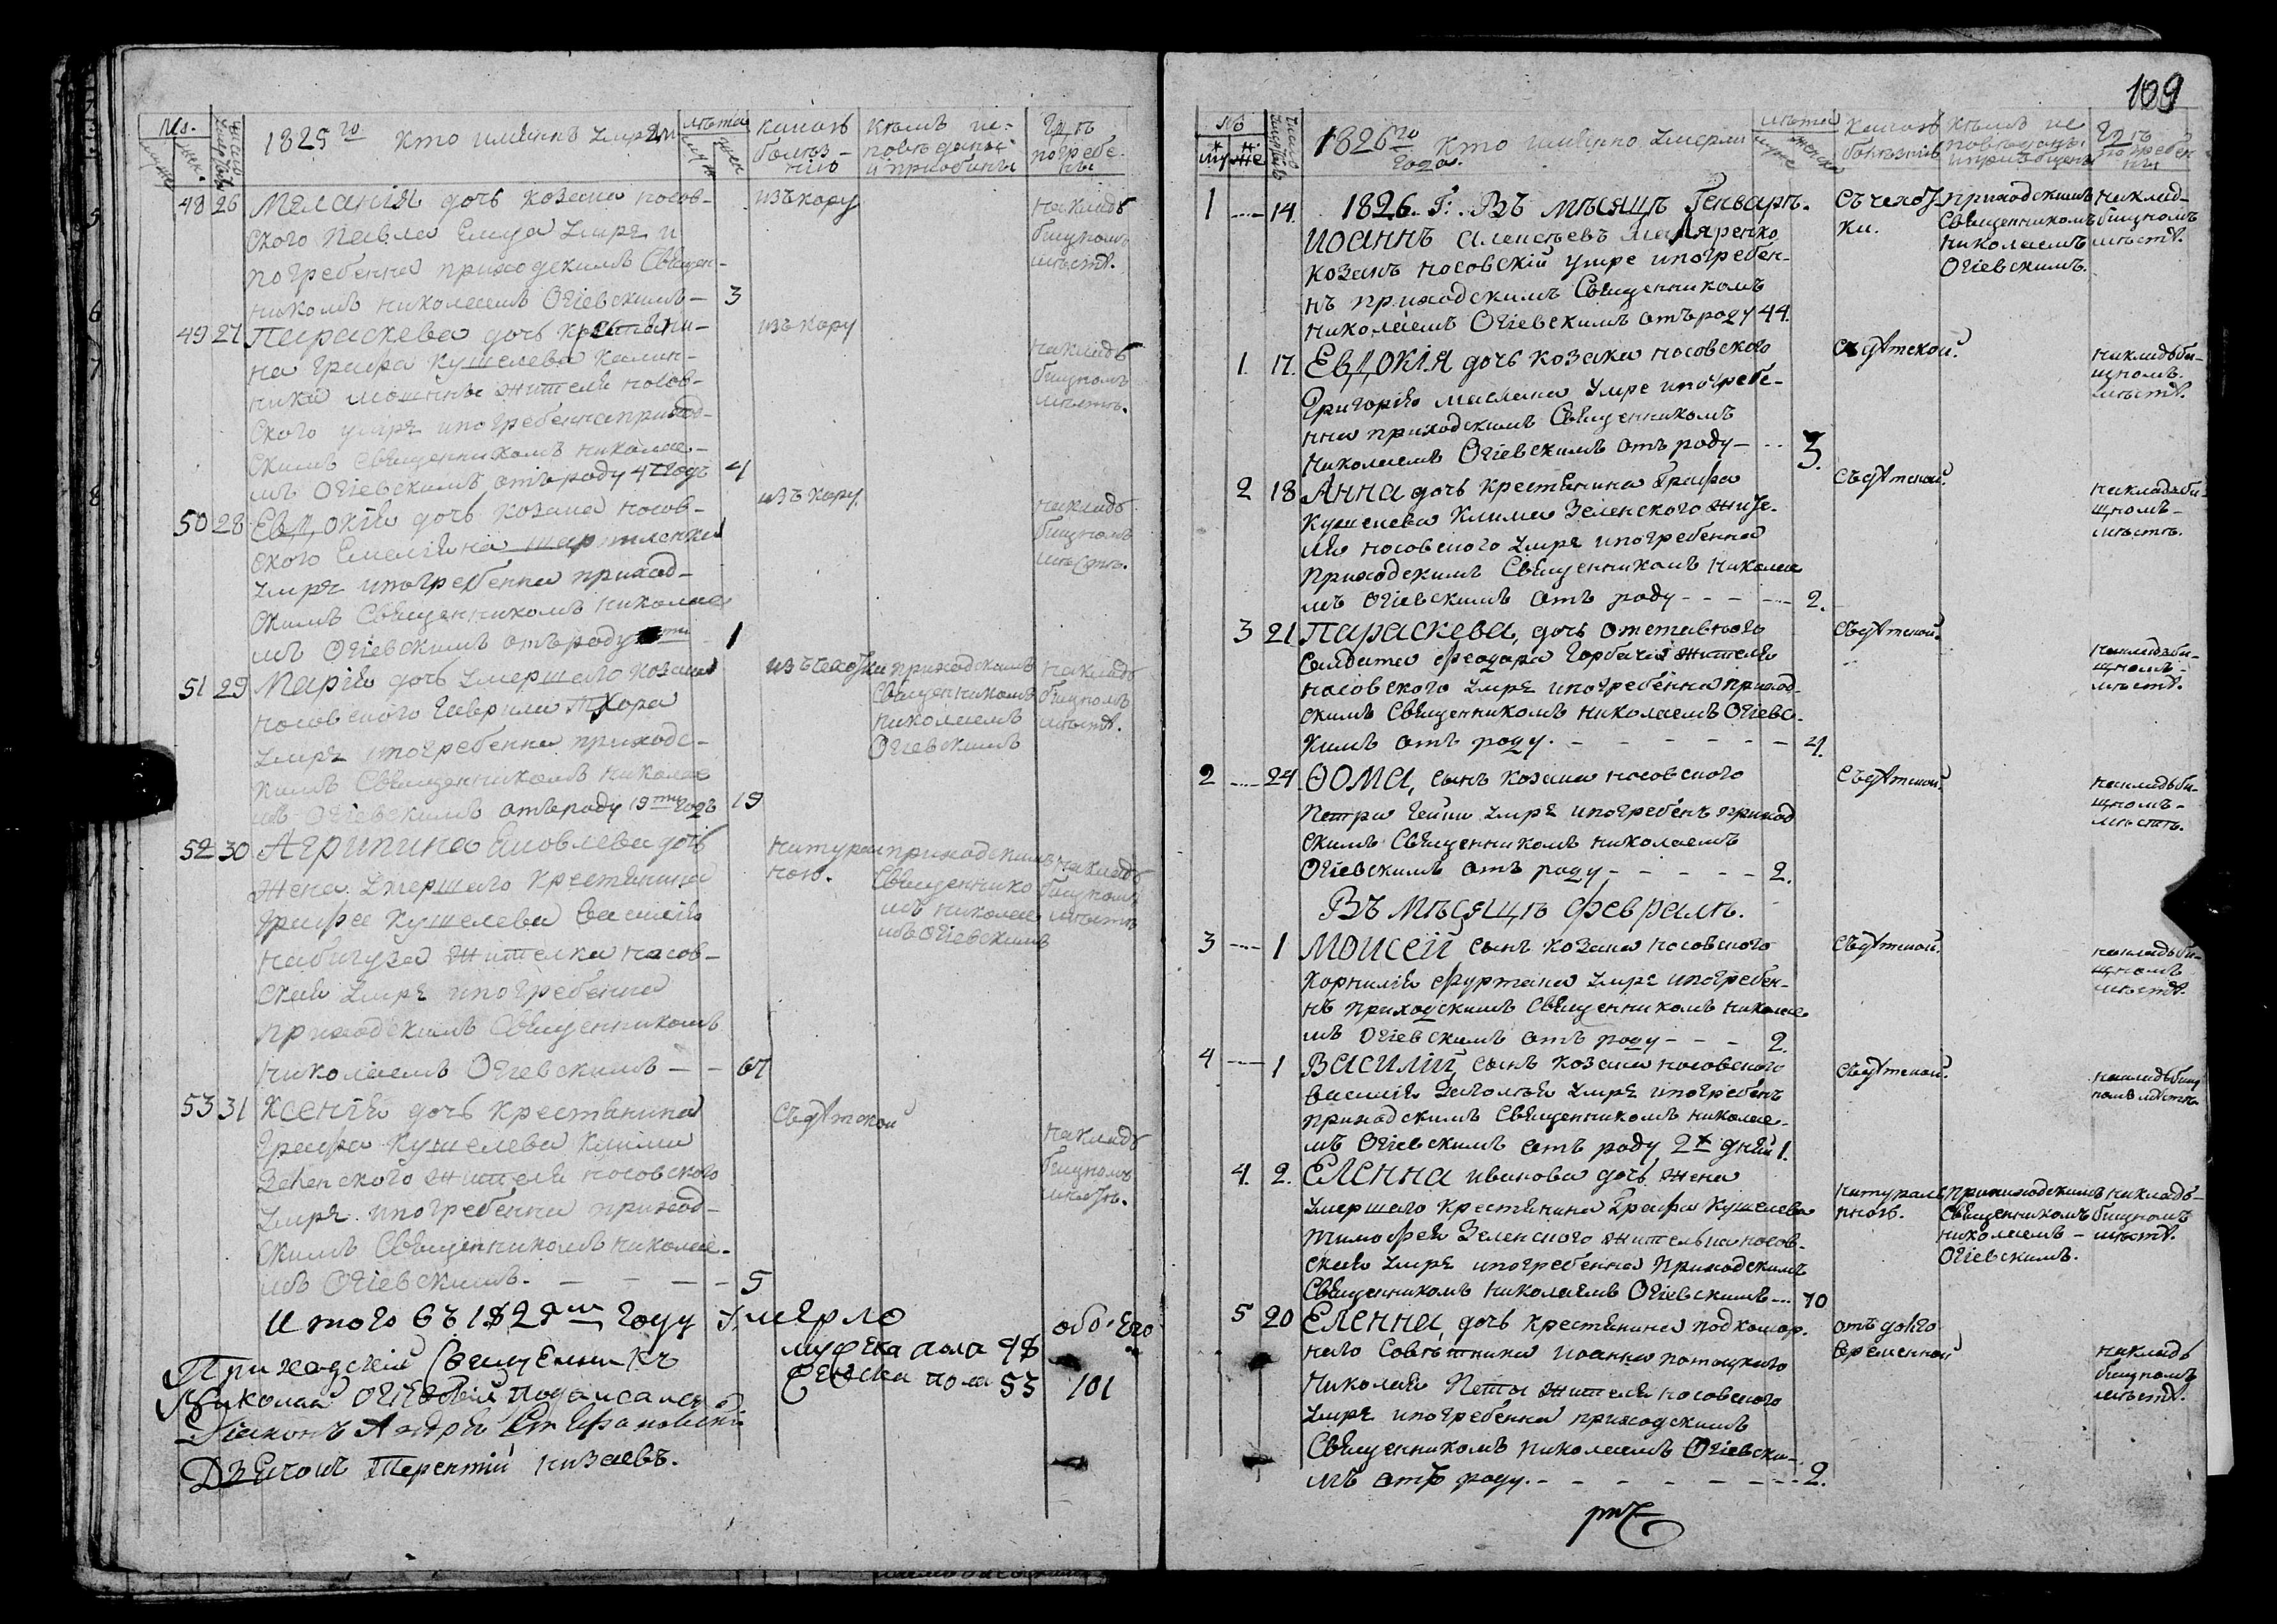 1825го кто имянъ умре
лѣта
какою болѣзнію
кѣмъ исповѣданы и приобщены
гдѣ погребены
48 26 Меланія дочь козака носов-
ского Павла умре и
погребенна приходскимъ Священ-
никомъ николаемъ Огіевскимъ — 3
изъ кору
на кладбищномъ мѣстѣ.
49 27 Параскева дочь крестяни-
на графа кушелева калин-
ника жителя носов-
ского умре и погребенна приход-
скимъ священникомъ николае-
мъ Огіевскимъ отъ роду 4 годъ 4
изъ кору
на кладбищномъ мѣстѣ.
50 28 Евдокія дочь козака носов-
ского Емеліяна
умре и погребенна приход-
скимъ Священникомъ николае
мъ Огіевскимъ отъ роду 1
изъ кору
на кладбищномъ мѣстѣ.
51 29 Марія дочь умершаго козака
носовского Гаврила Тхора
умре и погребенна приходс-
кимъ Священникомъ николае
мъ Огіевскимъ отъ роду 19 годъ 19
изъ чехотки
приходскимъ Священникомъ николаемъ Огіевскимъ
на кладбищномъ мѣстѣ.
52 30 Агрипина Яковлева дочь
жена умершаго крестянина
графа кушелева василія
жителка носов-
ская умре и погребенна
приходскимъ Священникомъ
николаемъ Огіевскимъ — — 67
натуралною.
приходскимъ Священникомъ николаемъ Огіевскимъ
на кладбищномъ мѣстѣ
53 31 Ксенія дочь крестянина
графа кушелева клима
Зеленского жителя носовского
умре и погребенна приход-
скимъ Священникомъ николае-
мъ Огіевскимъ. — — — — 5
съ дѣтской
на кладбищномъ мѣстѣ.
Итого въ 1825мъ году умерло
мужеска пола 48
женска пола 53
101
Приходскій Священникъ
Николай Огіевскій подписался
Діаконъ Андрей Стефановскій
Дячокъ Терентій низаевъ.
109
1826го года. Кто имянно умерли
лѣта
какою болѣзнію
кѣмъ исповѣданъ и приобщенъ
гдѣ погребены
1826. Г: Въ мѣсяцѣ Генварѣ.
1 — 14. Иоаннъ Алексѣевъ Маляренко
козакъ носовскій умре и погребен-
нъ приходскимъ Священникомъ
николаемъ Огіевскимъ отъ роду 44.
Съ чехотки.
приходскимъ Священникомъ николаемъ Огіевскимъ.
на кладбищномъ мѣстѣ.
1. 17. Евдокія дочь козака носовского
Григорія маслака умре и погребе-
нна приходскимъ Священникомъ
николаемъ Огіевскимъ отъ роду — 3.
Съ дѣтской.
на кладбищномъ мѣстѣ.
2 18 Анна дочь крестянина графа
Кушелева Клима Зеленского жите-
ля носовского умре и погребенна
приходскимъ Священникомъ николае
мъ Огіевскимъ отъ роду - - - - 2.
Съ дѣтской.
на кладбищномъ мѣстѣ.
3 21 Параскева, дочь отставного
солдата феодора Горбача жителя
носовского умре и погребенна приход-
скимъ Священникомъ николаемъ Огіевс-
кимъ отъ роду. - - - - - - 4.
Съ дѣтской.
на кладбищномъ мѣстѣ.
2 — 24 Ѳома, сынъ козака носовского
Петра умре и погребенъ приход
скимъ Священникомъ николаемъ
Огіевскимъ отъ роду - - - - - 2.
Съ дѣтской.
на кладбищномъ мѣстѣ.
Въ мѣсяцѣ февралѣ.
3 — 1 Моисей сынъ козака носовского
корнилія фуртака умре и погребен-
нъ приходскимъ Священникомъ николае
мъ Огіевскимъ отъ роду - - - 2.
Съ дѣтской.
на кладбищномъ мѣстѣ.
4 — 1 Василий, сынъ козака носовского
василія умре и погребенъ
приходскимъ Священникомъ николае-
мъ Огіевскимъ отъ роду 2х дній 1.
Съ дѣтской.
на кладбищномъ мѣстѣ.
4. 2. Еленна иванова дочь жена
умершаго крестянина Графа Кушелева
тимофея Зеленского жителька носов-
ская умре и погребенна Приходскимъ
Священникомъ николаемъ Огіевскимъ — 70
натуралною.
приходскимъ Священникомъ николаемъ — Огіевскимъ.
на кладбищномъ мѣстѣ.
5 20 Еленна, дочь крестянина подкомор-
наго Совѣтника иоанна потоцкого
Николая Петы жителя носовского
умре и погребенна приходскимъ
Священникомъ николаемъ Огіевски-
мъ отъ роду. - - - - - - - 2.
отъ долго временной
на кладбищномъ мѣстѣ.